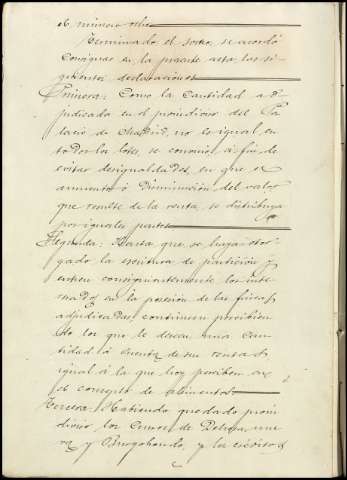 16, número ocho
Terminado el sorteo, se acordó
consignar en la presente acta las si-
guientes declaraciones
Primera: Como la cantidad ad-
judicada en el proindiviso del Pa-
lacio de Madrid, no es igual en
todos los lotes, se convino á fin de
evitar desigualdades, en que el
aumento ó disminución del valor
que resulte de la venta, se distribuya
por iguales partes
Segunda: Hasta que se haya otor-
gado la escritura de partición y
entren consiguientemente los inte-
resados en la posesión de las fincas
adjudicadas, continuen percibien-
do los que lo deseen una can-
tidad á cuenta de sus rentas
igual á la que hoy perciben en
el concepto de alimentos
Tercera: Habiendo quedado proin-
diviso los Censos de
y Burgohondo, y la